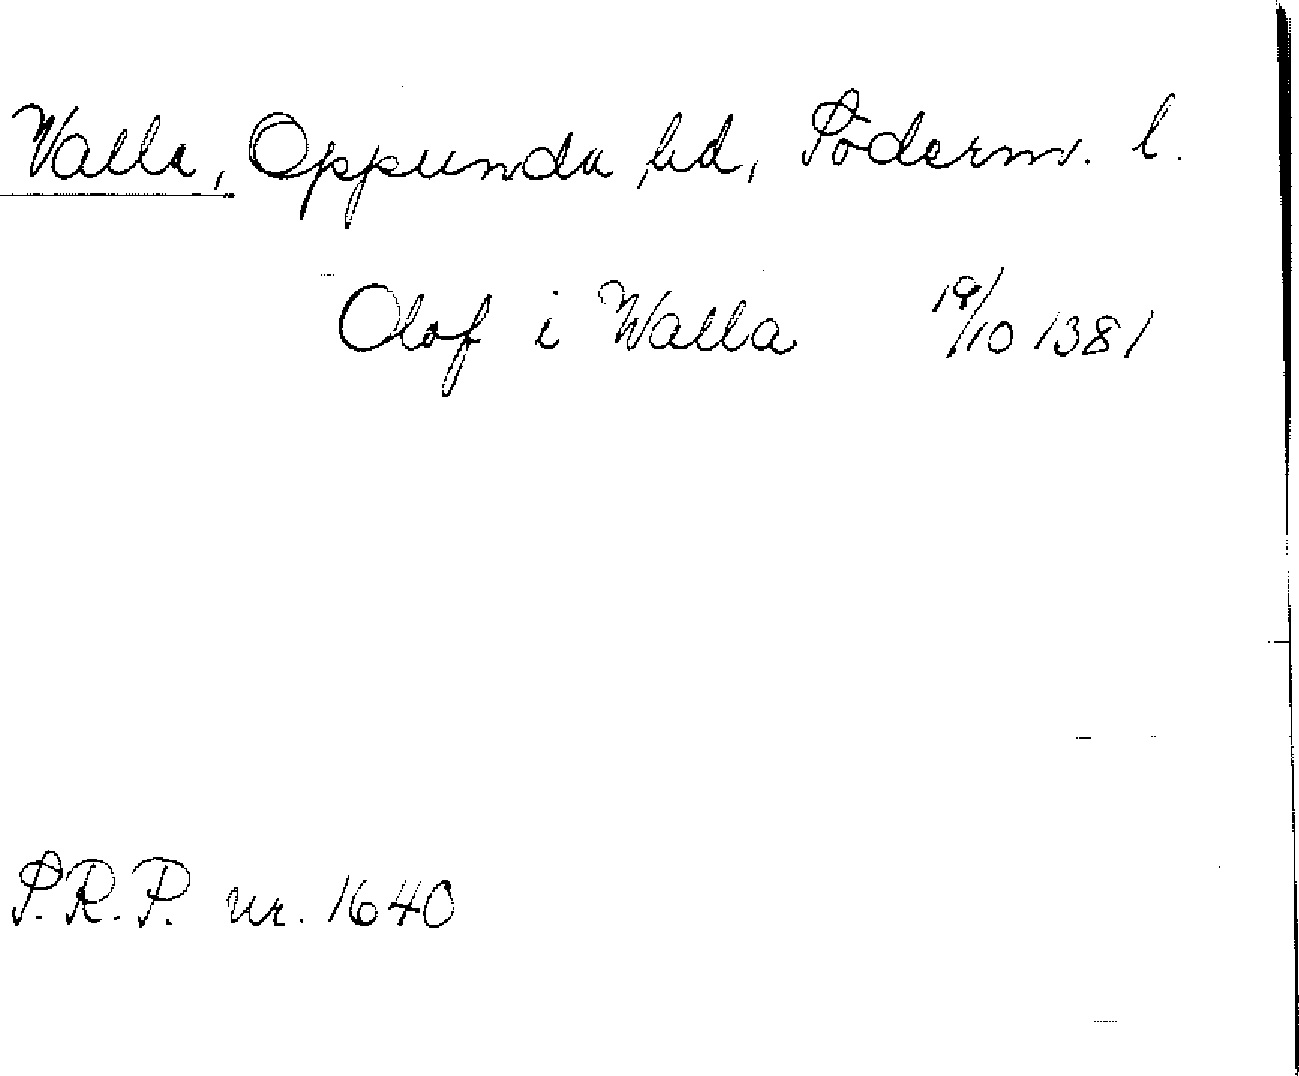 Valla, Oppunda hd, Söderm. l.
Olof i Walla 19/10 1381
S.R.P. nr. 1640